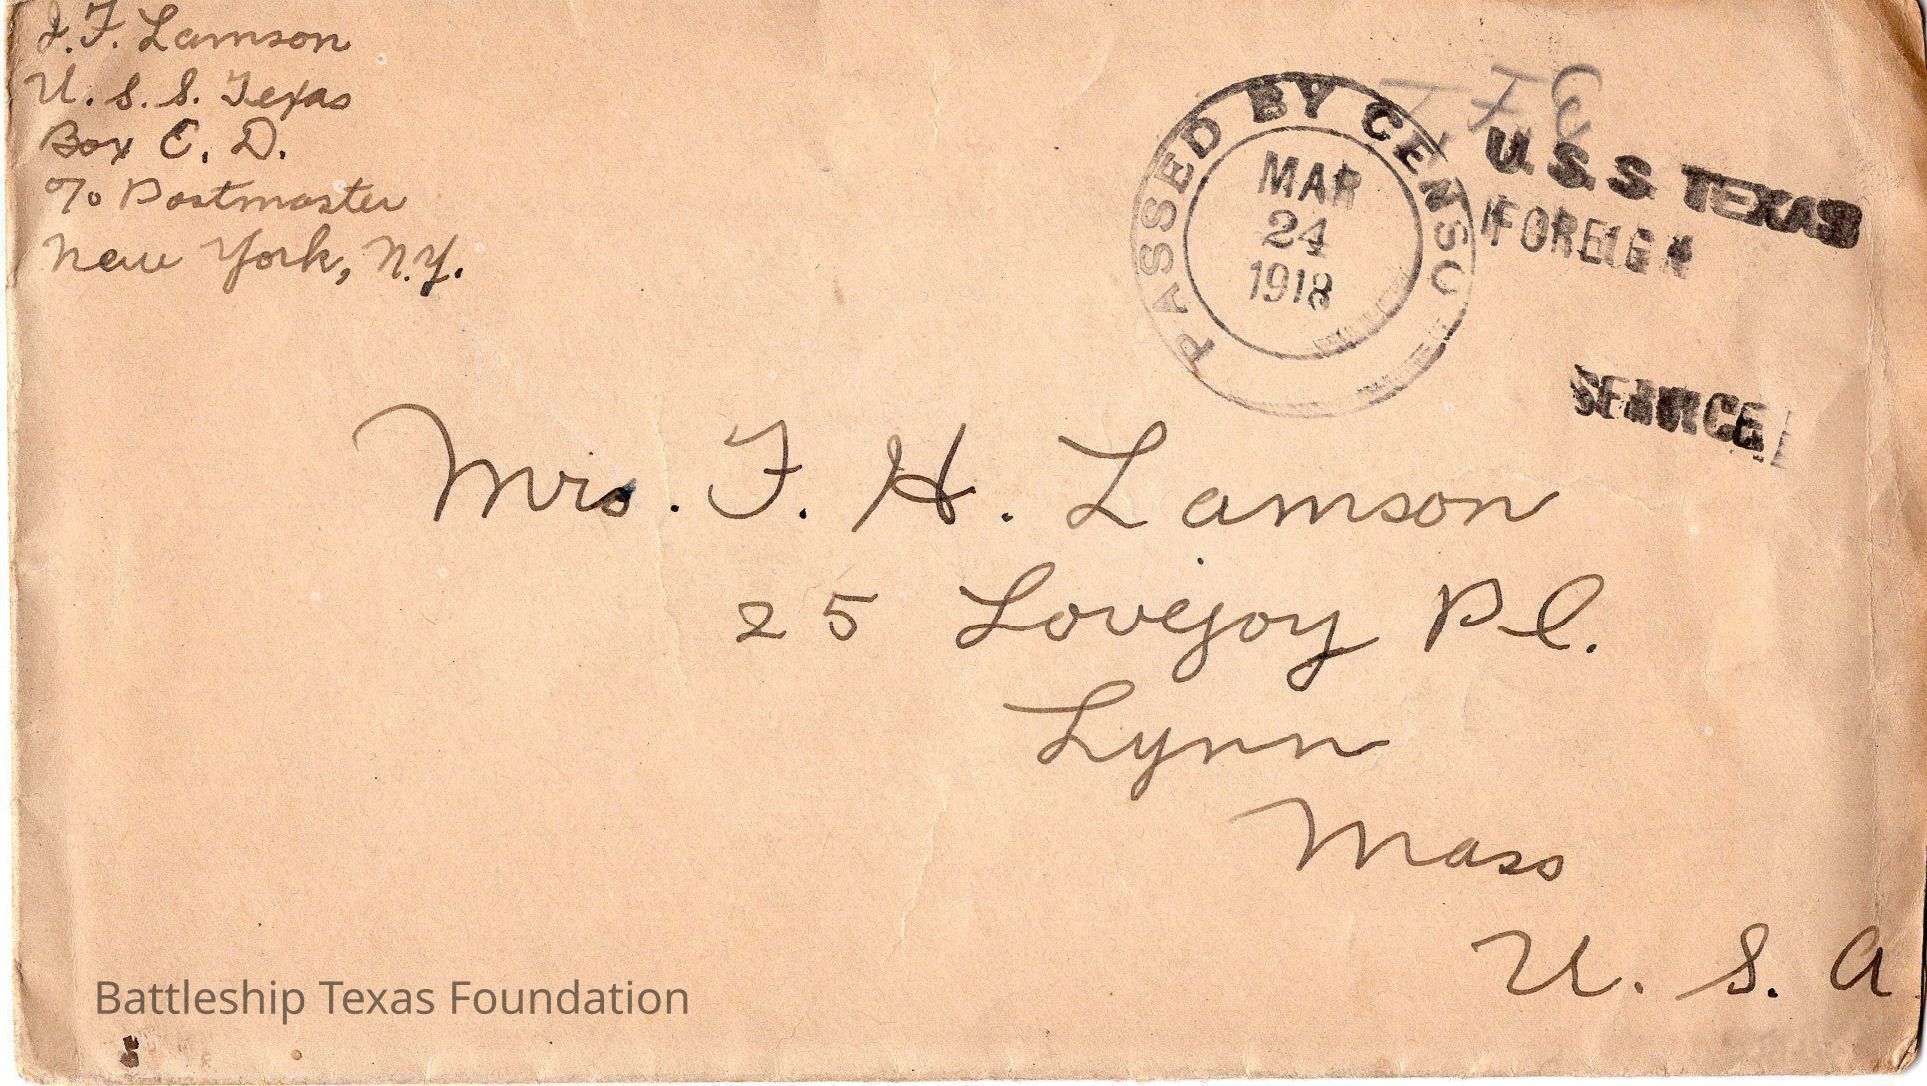 J. F. Lamson
U. S. S. Texas
Box E. D.
c/o Postmaster
New York, N.Y.
PASSED BY CENSO
MAR
24
1918
U.S.S. TEXAS
FOREIGN
SERVICE
Mrs. F. H. Lamson
25 Lovejoy Pl.
Lynn
Mass
U. S. A
Battleship Texas Foundation